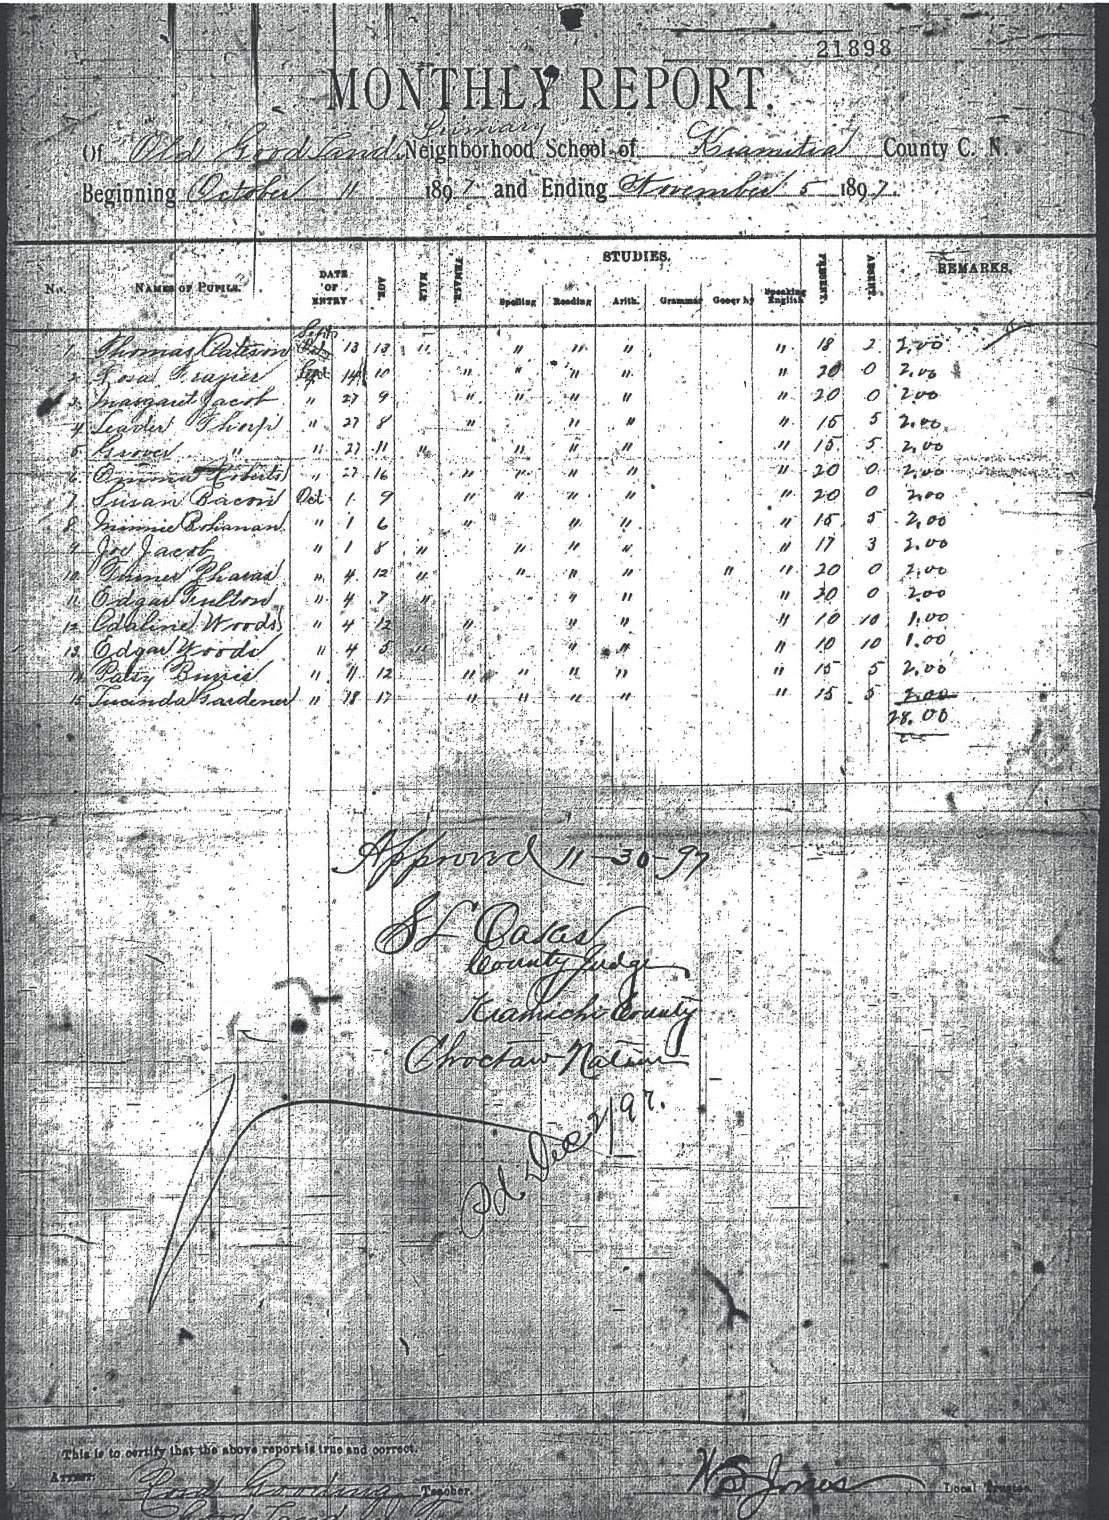 21898
MONTHLY REPORT.
Primary
Of Old Good Land Neighborhood School of Kiamitia County C. N.
Beginning October 11 1897 and Ending November 5 1897.
No. NAMES OF PUPILS. DATE OF ENTRY AGE MALE FEMALE STUDIES. Spelling Reading Arith. Grammar Geogr'hy Speaking English PRESENT. ABSENT. REMARKS.
Sept
1. Thomas 13 13 " " " " " 18 2 2.00
2. Rosa Frazier Sept 14 10 " " " " " 20 0 2.00
3. Margaret Jacob " 27 9 " " " " " 20 0 2.00
4. Leader Thorp " 27 8 " " " " 15 5 2.00
5. Grover " " 27 11 " " " " " 15 5 2.00
6. Emma Roberts " 27 16 " " " " " 20 0 2.00
7. Susan Bacon Oct 1 9 " " " " " 20 0 2.00
8. Minnie Bohanan " 1 6 " " " " 15 5 2.00
9. Joe Jacob " 1 8 " " " " " 17 3 2.00
10. Turner " 4 12 " " " " " " 20 0 2.00
11. Edgar Fulton " 4 7 " " " " 20 0 2.00
12. Adaline Woods " 4 12 " " " " 10 10 1.00
13. Edgar Woods " 4 5 " " " " 10 10 1.00
14. Patsy " 11 12 " " " " " 15 5 2.00
15. Lucinda Gardener " 18 17 " " " " " 15 5 2.00
28.00
Approved 11-30-97
S L
County Judge
Kiamichi County
Choctaw Nation
Pd Dec 2/97.
This is to certify that the above report is true and correct.
ATTEST: Gooding Teacher. W B Jones Local Trustee.
Good Land